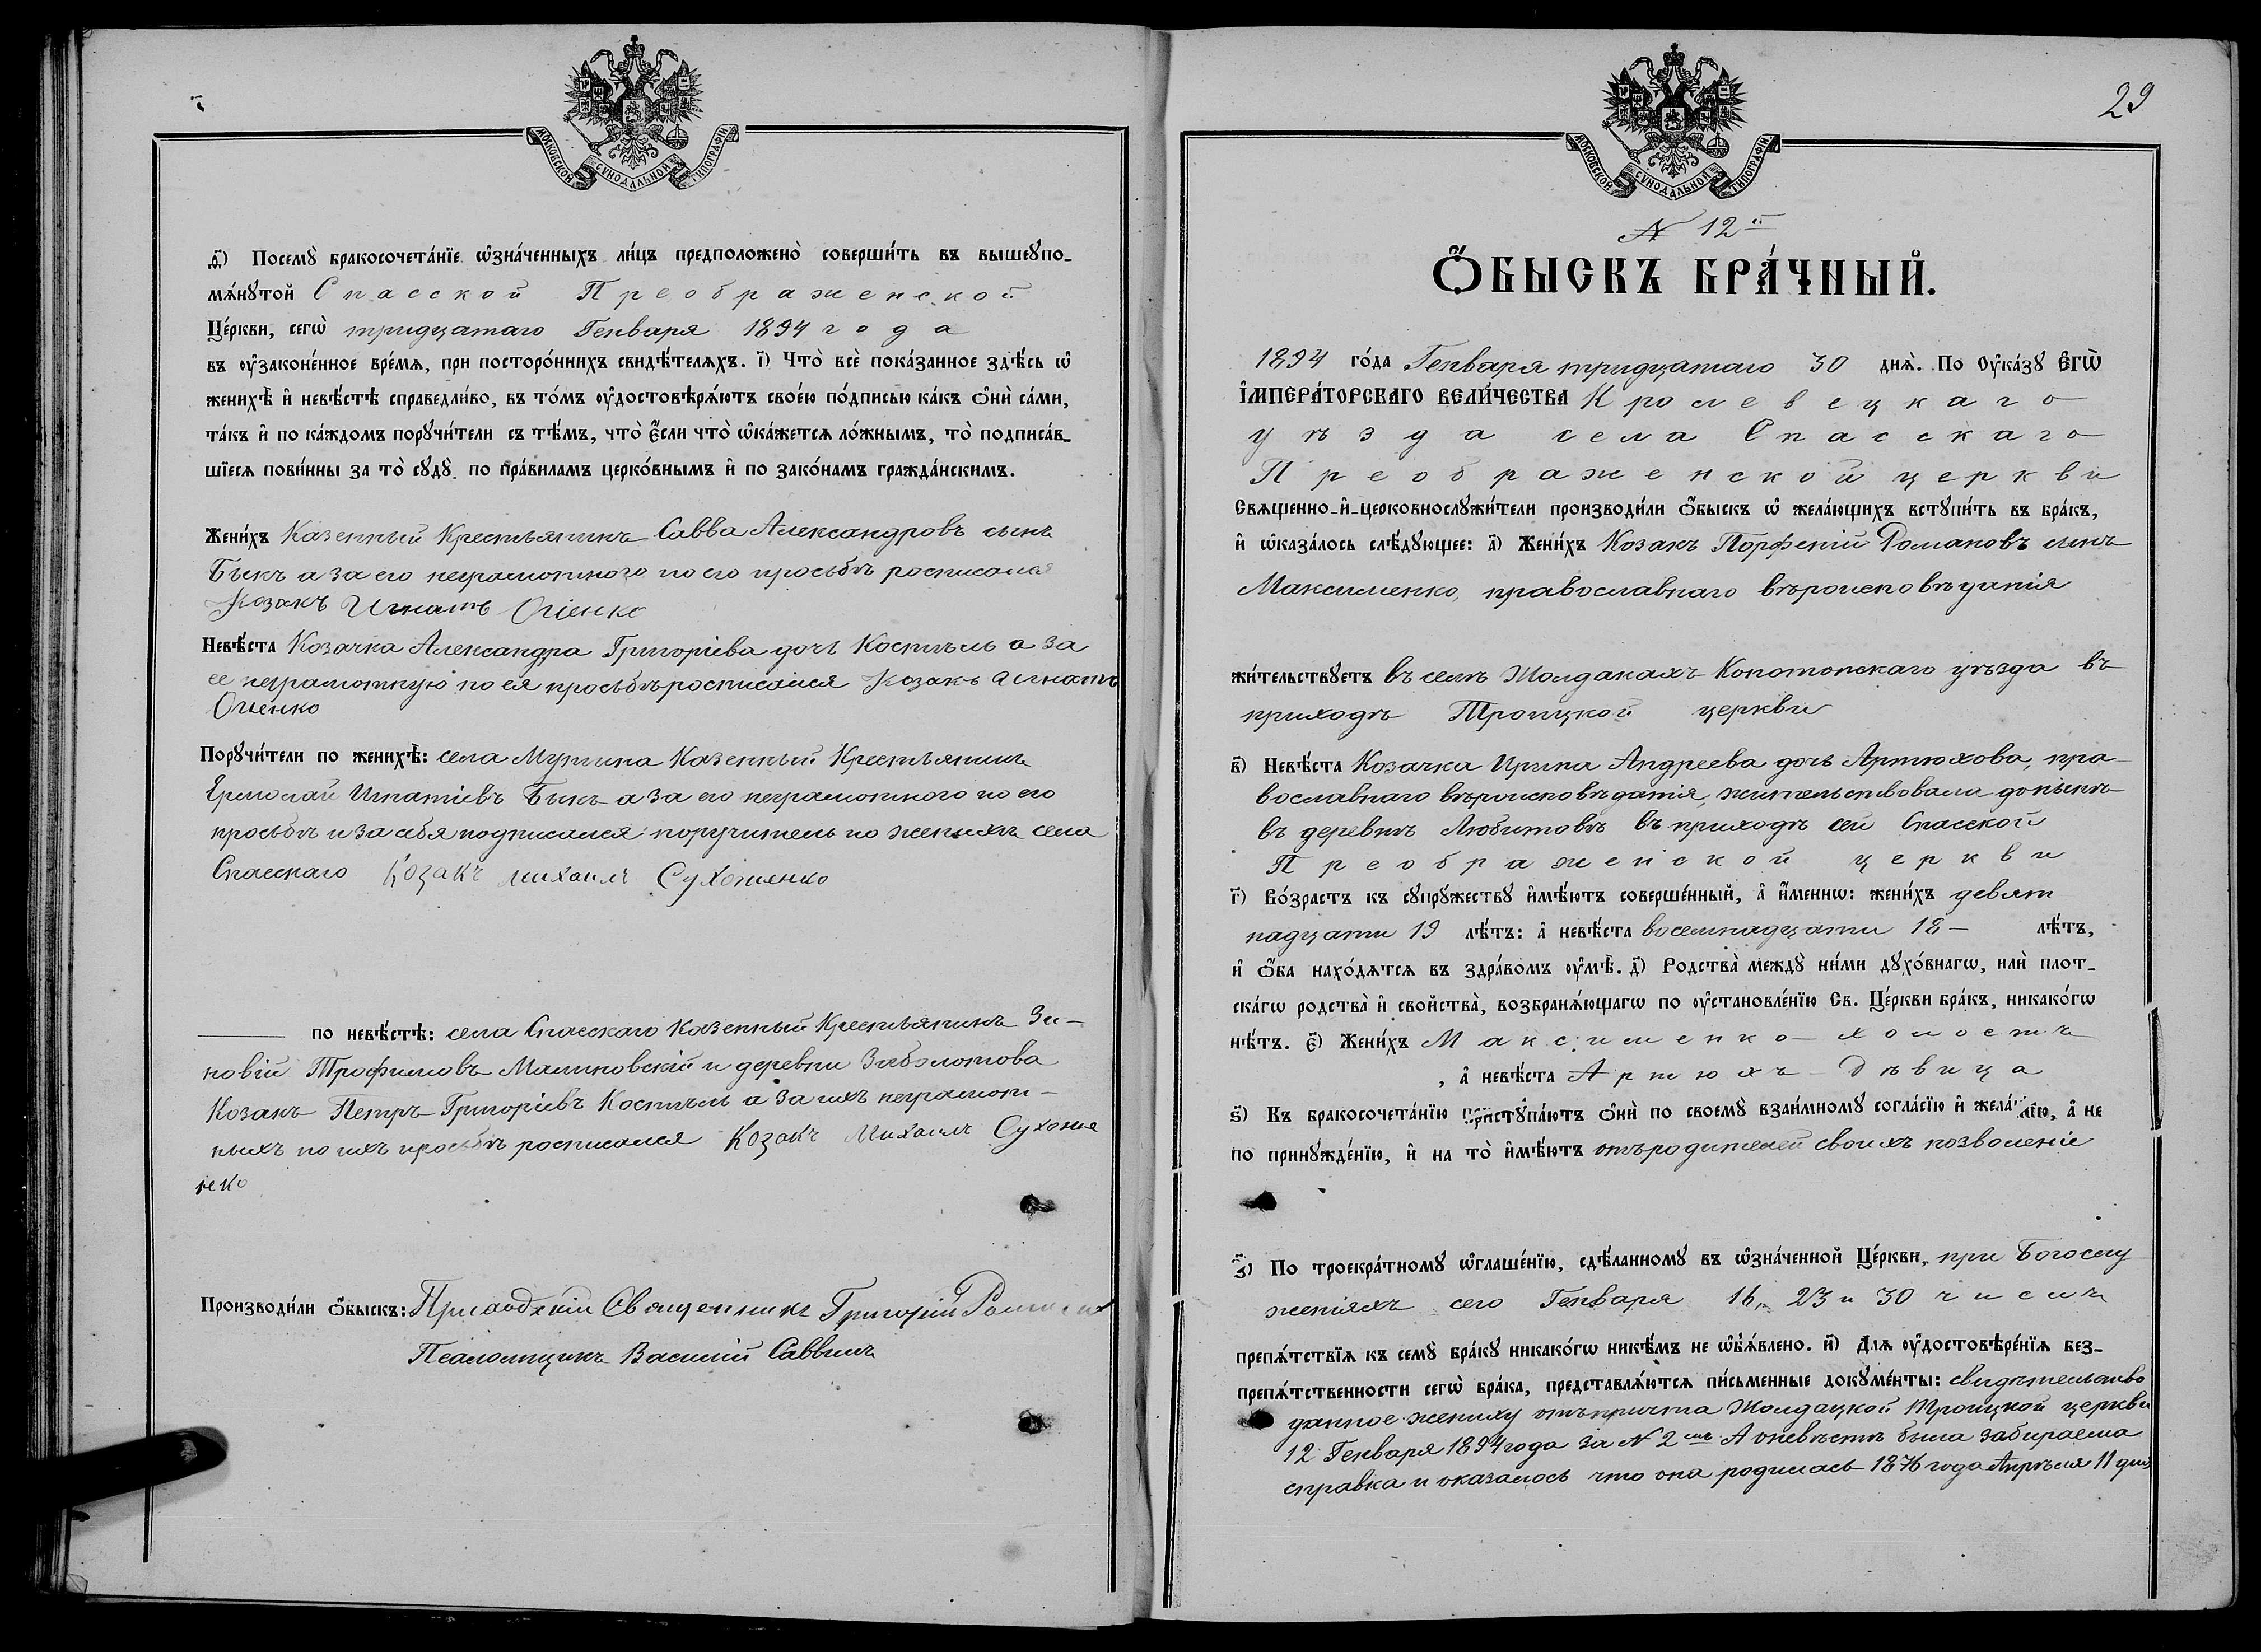 МОСКОВСКОЙ СУНОДАЛЬНОЙ ТИПОГРАФІИ
Ѳ҃) Посемꙋ̀ бракосочета́нїе ѡ҆зна́ченныхъ ли́цъ предположено̀ соверши́ть въ вышеꙋпо-
мѧ́нꙋтой Спасской Преображенской
Це́ркви, сегѡ̀ тридцатаго Генваря 1894 года
въ ᲂу҆законе́нное вре́мѧ, при посторо́ннихъ свидѣ́телѧхъ. і҃) Что̀ всѐ пока́занное здѣ́сь ѡ҆
женихѣ̀ и҆ невѣ́стѣ справедли́во, въ то́мъ ᲂу҆достовѣрѧ́ютъ свое́ю по́дписью ка́къ ѻ҆нѝ са́ми,
та́къ и҆ по ка́ждомъ порꙋчи́тели съ тѣ́мъ, что̀ є҆́сли что̀ ѡ҆ка́жетсѧ ло́жнымъ, то̀ подписа́в-
шїесѧ пови́нны за то̀ сꙋдꙋ̀ по пра́виламъ церко́внымъ и҆ по зако́намъ гражда́нскимъ.
Жени́хъ Казенный Крестьянинъ Савва Александровъ сынъ
Быкъ а за его неграмотного по его просьбѣ росписался
Козакъ Игнатъ Огіенко
Невѣ́ста Козачка Александра Григоріева дочь Костыль а за
ее неграмотную по ея просьбѣ росписался Козакъ Игнатъ
Огіенко
Порꙋчи́тели по женихѣ̀: села Мутина Казенный Крестьянинъ
Ермолай Игнатіевъ Быкъ а за его неграмотного по его
просьбѣ и за себя подписался поручитель по женихѣ села
Спасскаго Козакъ Михаилъ Сухоненко
по невѣ́стѣ: села Спасскаго Казенный Крестьянинъ Зи-
новій Трофимовъ Малиновскій и деревни Заболотова
Козакъ Петръ Григоріевъ Костыль а за ихъ неграмот-
ныхъ по ихъ просьбѣ росписался Козакъ Михаилъ Сухоне
нко
Производи́ли ѻ҆́быскъ: Приходскій Священникъ Григорій
Псаломщикъ Василій Саввичъ
29
МОСКОВСКОЙ СУНОДАЛЬНОЙ ТИПОГРАФІИ
№ 12й
Ѻ҆́БЫСКЪ БРА́ЧНЫЙ.
1894 го́да Генваря тридцатаго 30 днѧ̀. По Оу҆ка́зꙋ Є҆ГѠ̀
І҆МПЕРА́ТОРСКАГО ВЕЛИ́ЧЕСТВА Кролевецкаго
уѣзда села Спасскаго
Преображенской церкви
Свѧщенно-и҆-церковнослꙋжи́тели производи́ли ѻ҆́быскъ ѡ҆ жела́ющихъ встꙋпи́ть въ бра́къ,
и҆ ѡ҆каза́лось слѣ́дꙋющее: а҃) Жени́хъ Козакъ Порфеній Романовъ сынъ
Максименко, православнаго вѣроисповѣданія
жи́тельствꙋетъ въ селѣ Жолдакахъ Конотопскаго уѣзда въ
приходѣ Троицкой церкви
в҃) Невѣ́ста Козачка Ирина Андреева дочь Артюхова, пра-
вославнаго вѣроисповѣданія, жительствовала донынѣ
въ деревнѣ Любитовѣ въ приходѣ сей Спасской
Преображенской церкви
г҃) Во́зрастъ къ сꙋпрꙋ́жествꙋ и҆мѣ́ютъ соверше́нный, а҆ и҆́меннѡ: жени́хъ девят
надцати 19 лѣ́тъ: а҆ невѣ́ста восемнадцати 18 — лѣ́тъ,
и҆ ѻ҆́ба нахо́дѧтсѧ въ здра́вомъ ᲂу҆мѣ̀. д҃) Родства̀ междꙋ̀ ни́ми дꙋхо́внагѡ, илѝ плот-
ска́гѡ родства̀ и҆ свойства̀, возбранѧ́ющагѡ по ᲂу҆становле́нїю Св. Це́ркви бра́къ, никако́гѡ
нѣ́тъ. є҃) Жени́хъ Максименко — холостъ
, а҆ невѣ́ста Артюхъ — Дѣвица
ѕ҃) Къ бракосочета́нїю пристꙋпа́ютъ ѻ҆нѝ по своемꙋ̀ взаи́мномꙋ согла́сїю и҆ жела́нїю, а҆ не
по принꙋжде́нїю, и҆ на то̀ и҆мѣ́ютъ отъ родителей своихъ позволеніе
з҃) По троекра́тномꙋ ѡ҆глаше́нїю, сдѣ́ланномꙋ въ ѡ҆зна́ченной Це́ркви, при Богослу
женіяхъ сего Генваря 16, 23 и 30 числъ
препѧ́тствїѧ къ семꙋ̀ бра́кꙋ никако́гѡ никѣ́мъ не ѡ҆б̾ѧ́влено. и҃) Длѧ ᲂу҆достовѣре́нїѧ без-
препѧ́тственности сегѡ̀ бра́ка, представлѧ́ютсѧ пи́сьменные докꙋме́нты: свидѣтельство
данное жениху отъ причта Жолдацкой Троицкой церкви
12 Генваря 1894 года за № 2мъ А о невѣстѣ была забираема
справка и оказалось что она родилась 1876 года Апрѣля 11 дня